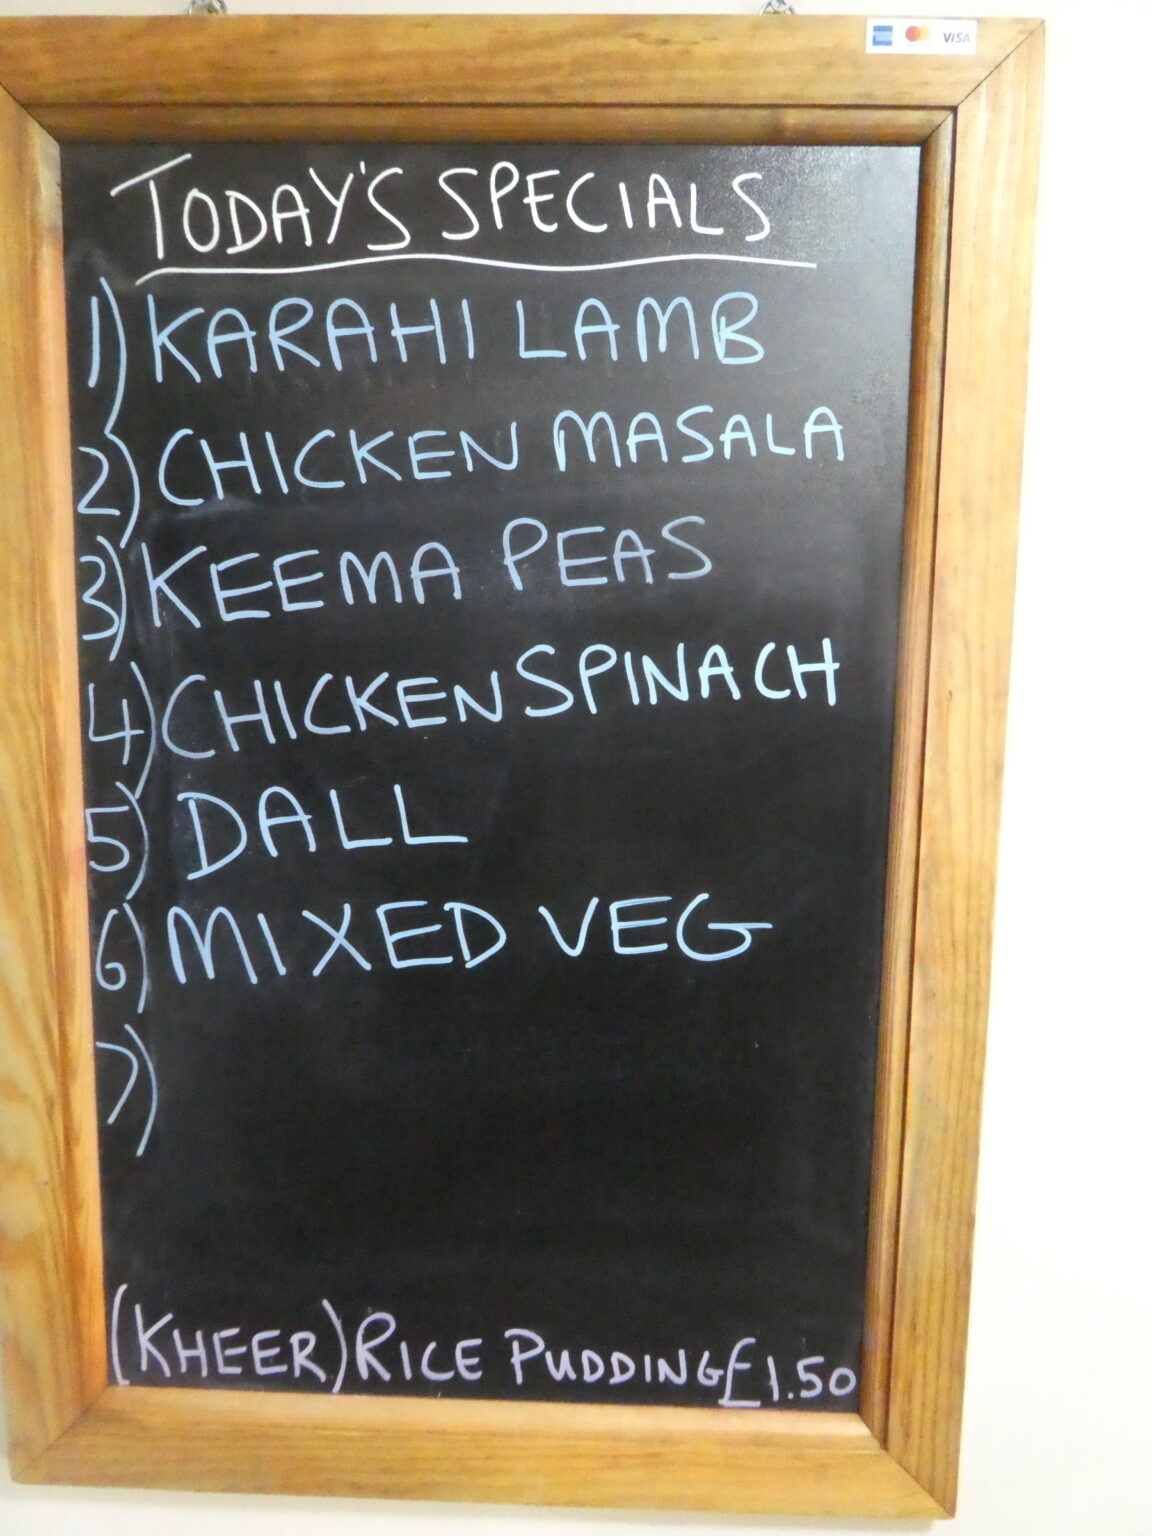 VISA
TODAY'S SPECIALS
1) KARAHI LAMB
2) CHICKEN MASALA
3) KEEMA PEAS
4) CHICKEN SPINACH
5) DALL
6) MIXED VEG
7)
(KHEER) RICE PUDDING £1.50